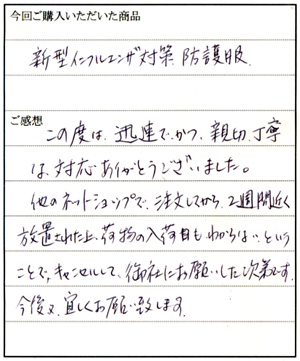 今回ご購入いただいた商品
新型インフルエンザ対策 防護服
ご感想
この度は、迅速でかつ、親切、丁寧
な対応ありがとうございました。
他のネットショップで、注文してから、2週間近く
放置された上、荷物の入荷日もわからない、という
ことで、キャンセルして、御社にお願いした次第です。
今後又、宜しくお願い致します。